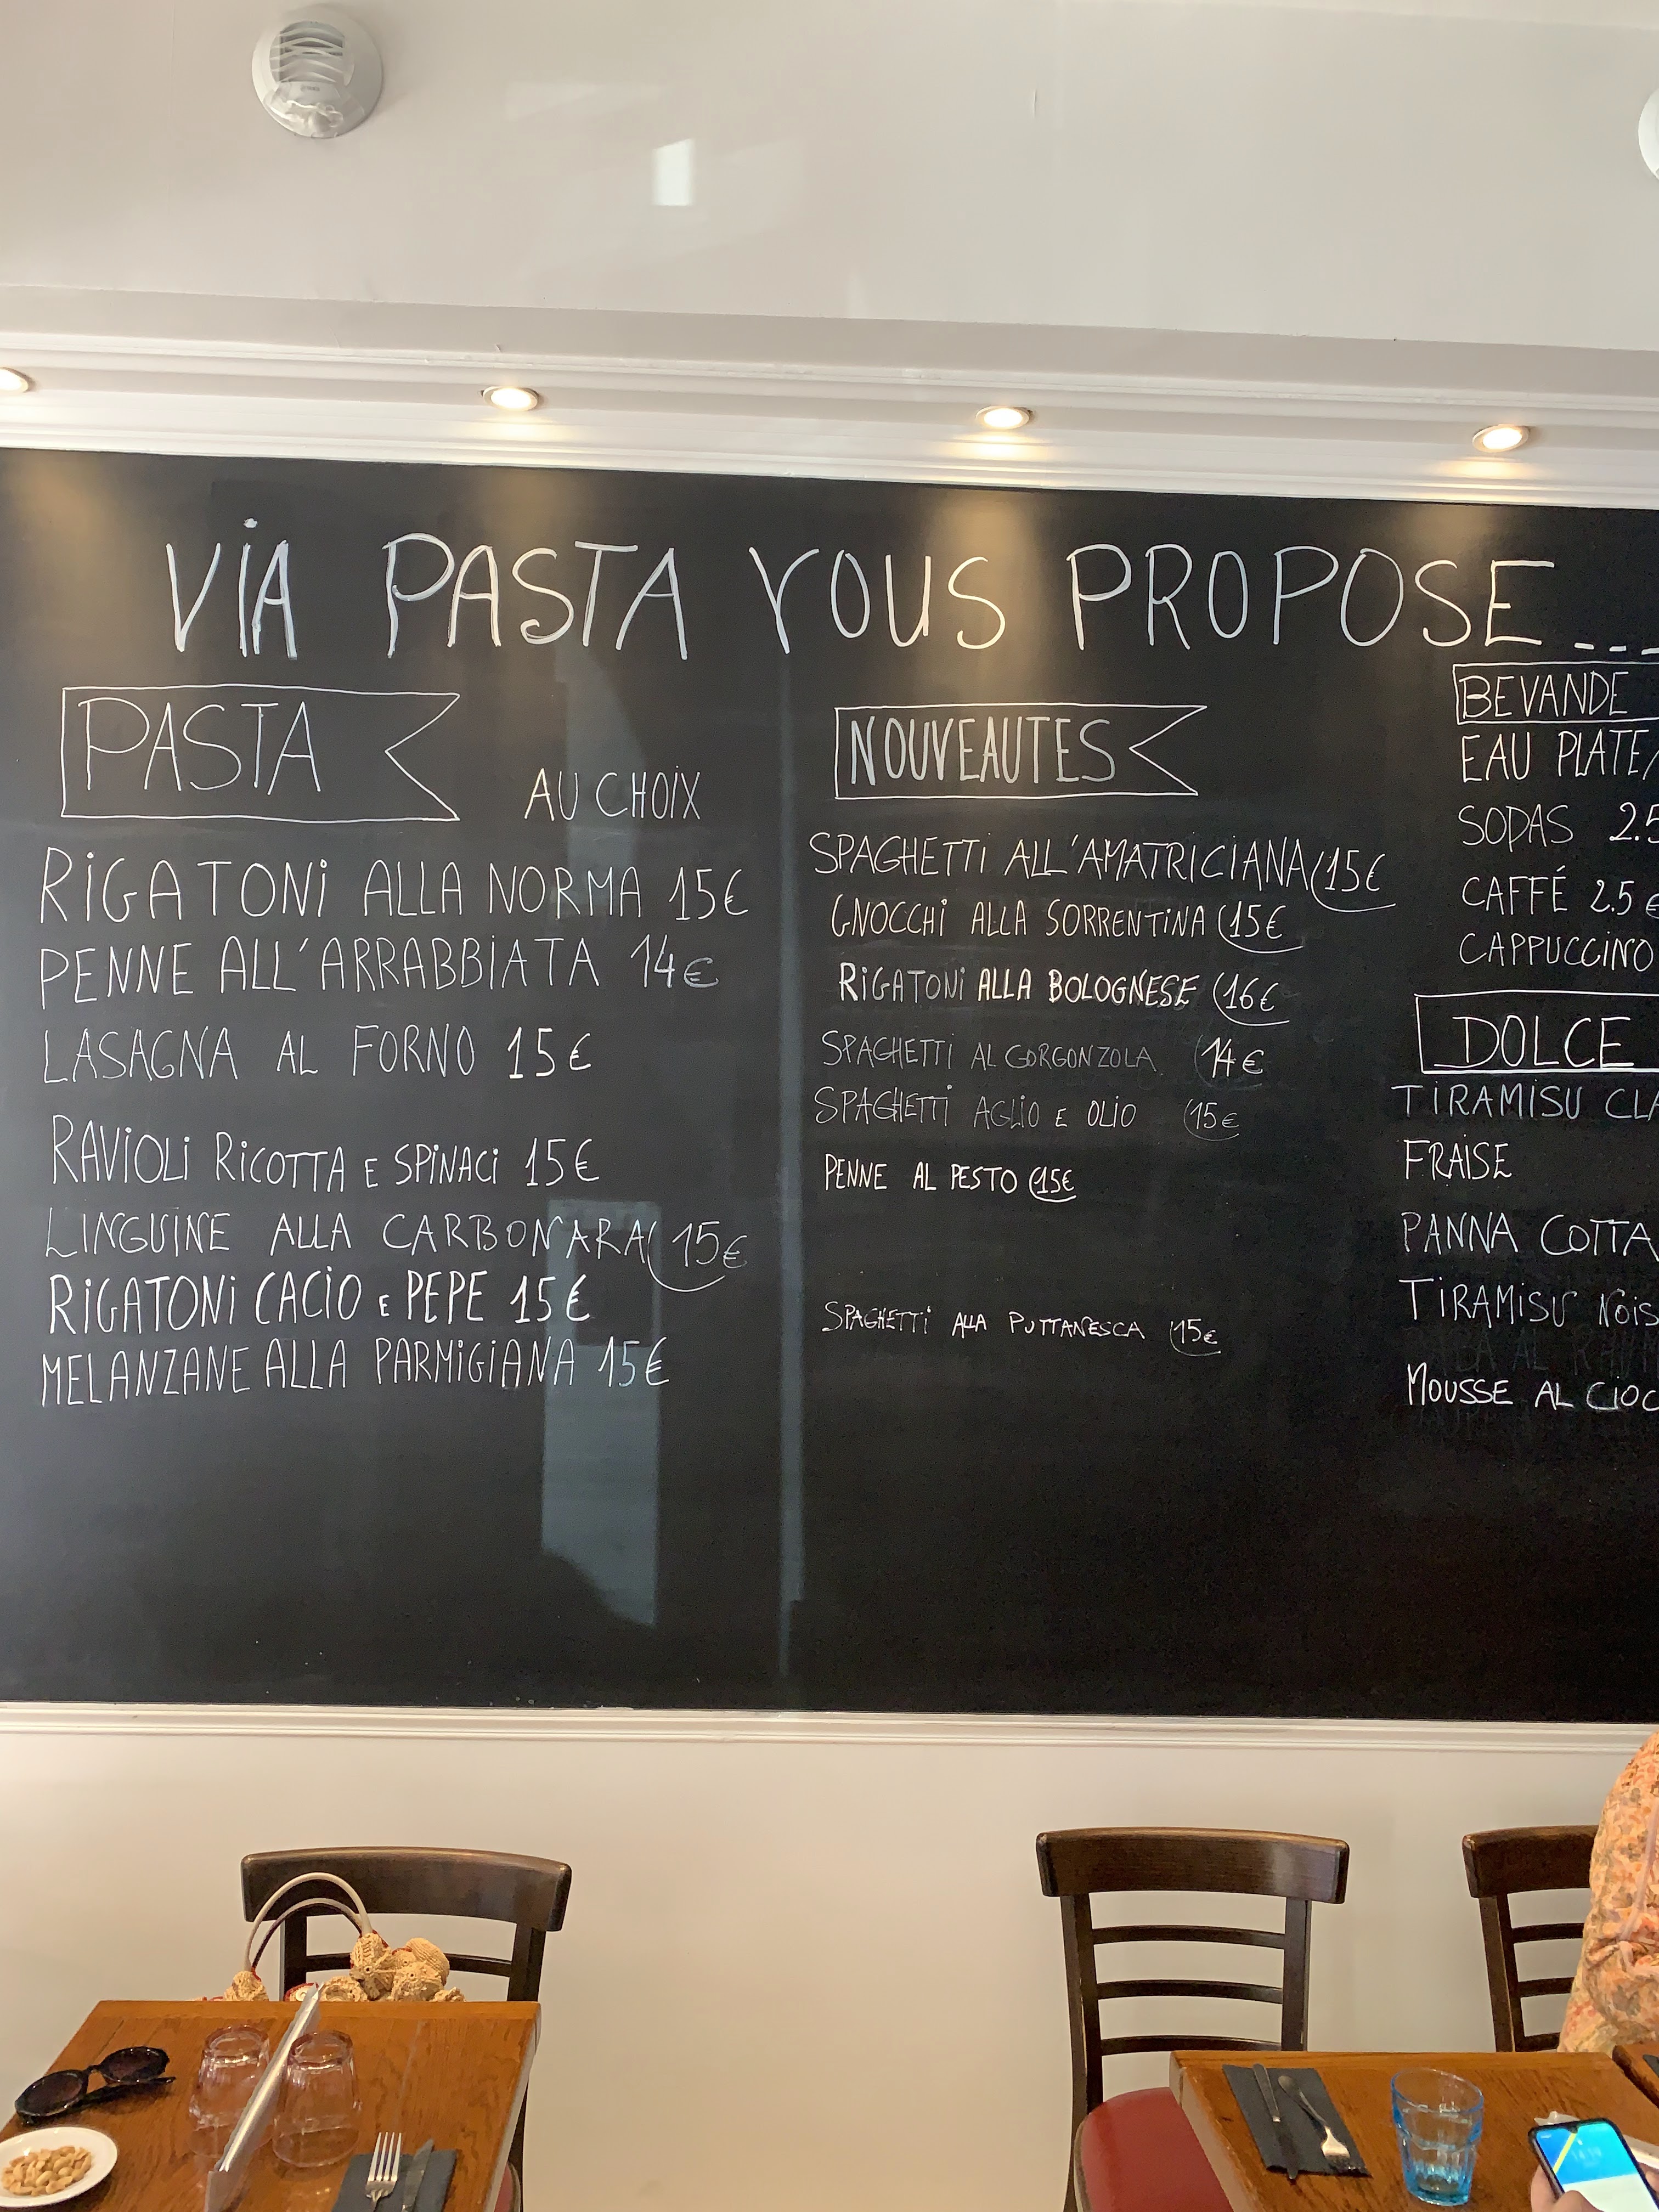 VIA PASTA VOUS PROPOSE...
PASTA
AU CHOIX
RIGATONI ALLA NORMA 15€
PENNE ALL'ARRABBIATA 14€
LASAGNA AL FORNO 15€
RAVIOLI RICOTTA E SPINACI 15€
LINGUINE ALLA CARBONARA 15€
RIGATONI CACIO E PEPE 15€
MELANZANE ALLA PARMIGIANA 15€
NOUVEAUTES
SPAGHETTI ALL'AMATRICIANA 15€
GNOCCHI ALLA SORRENTINA 15€
RIGATONI ALLA BOLOGNESE 16€
SPAGHETTI AL GORGONZOLA 14€
SPAGHETTI AGLIO E OLIO 15€
PENNE AL PESTO 15€
SPAGHETTI ALLA PUTTANESCA 15€
BEVANDE
EAU PLATE/
SODAS 2.5
CAFFÉ 2.5€
CAPPUCCINO
DOLCE
TIRAMISU CLA
FRAISE
PANNA COTTA
TIRAMISU NOIS
MOUSSE AL CIOC